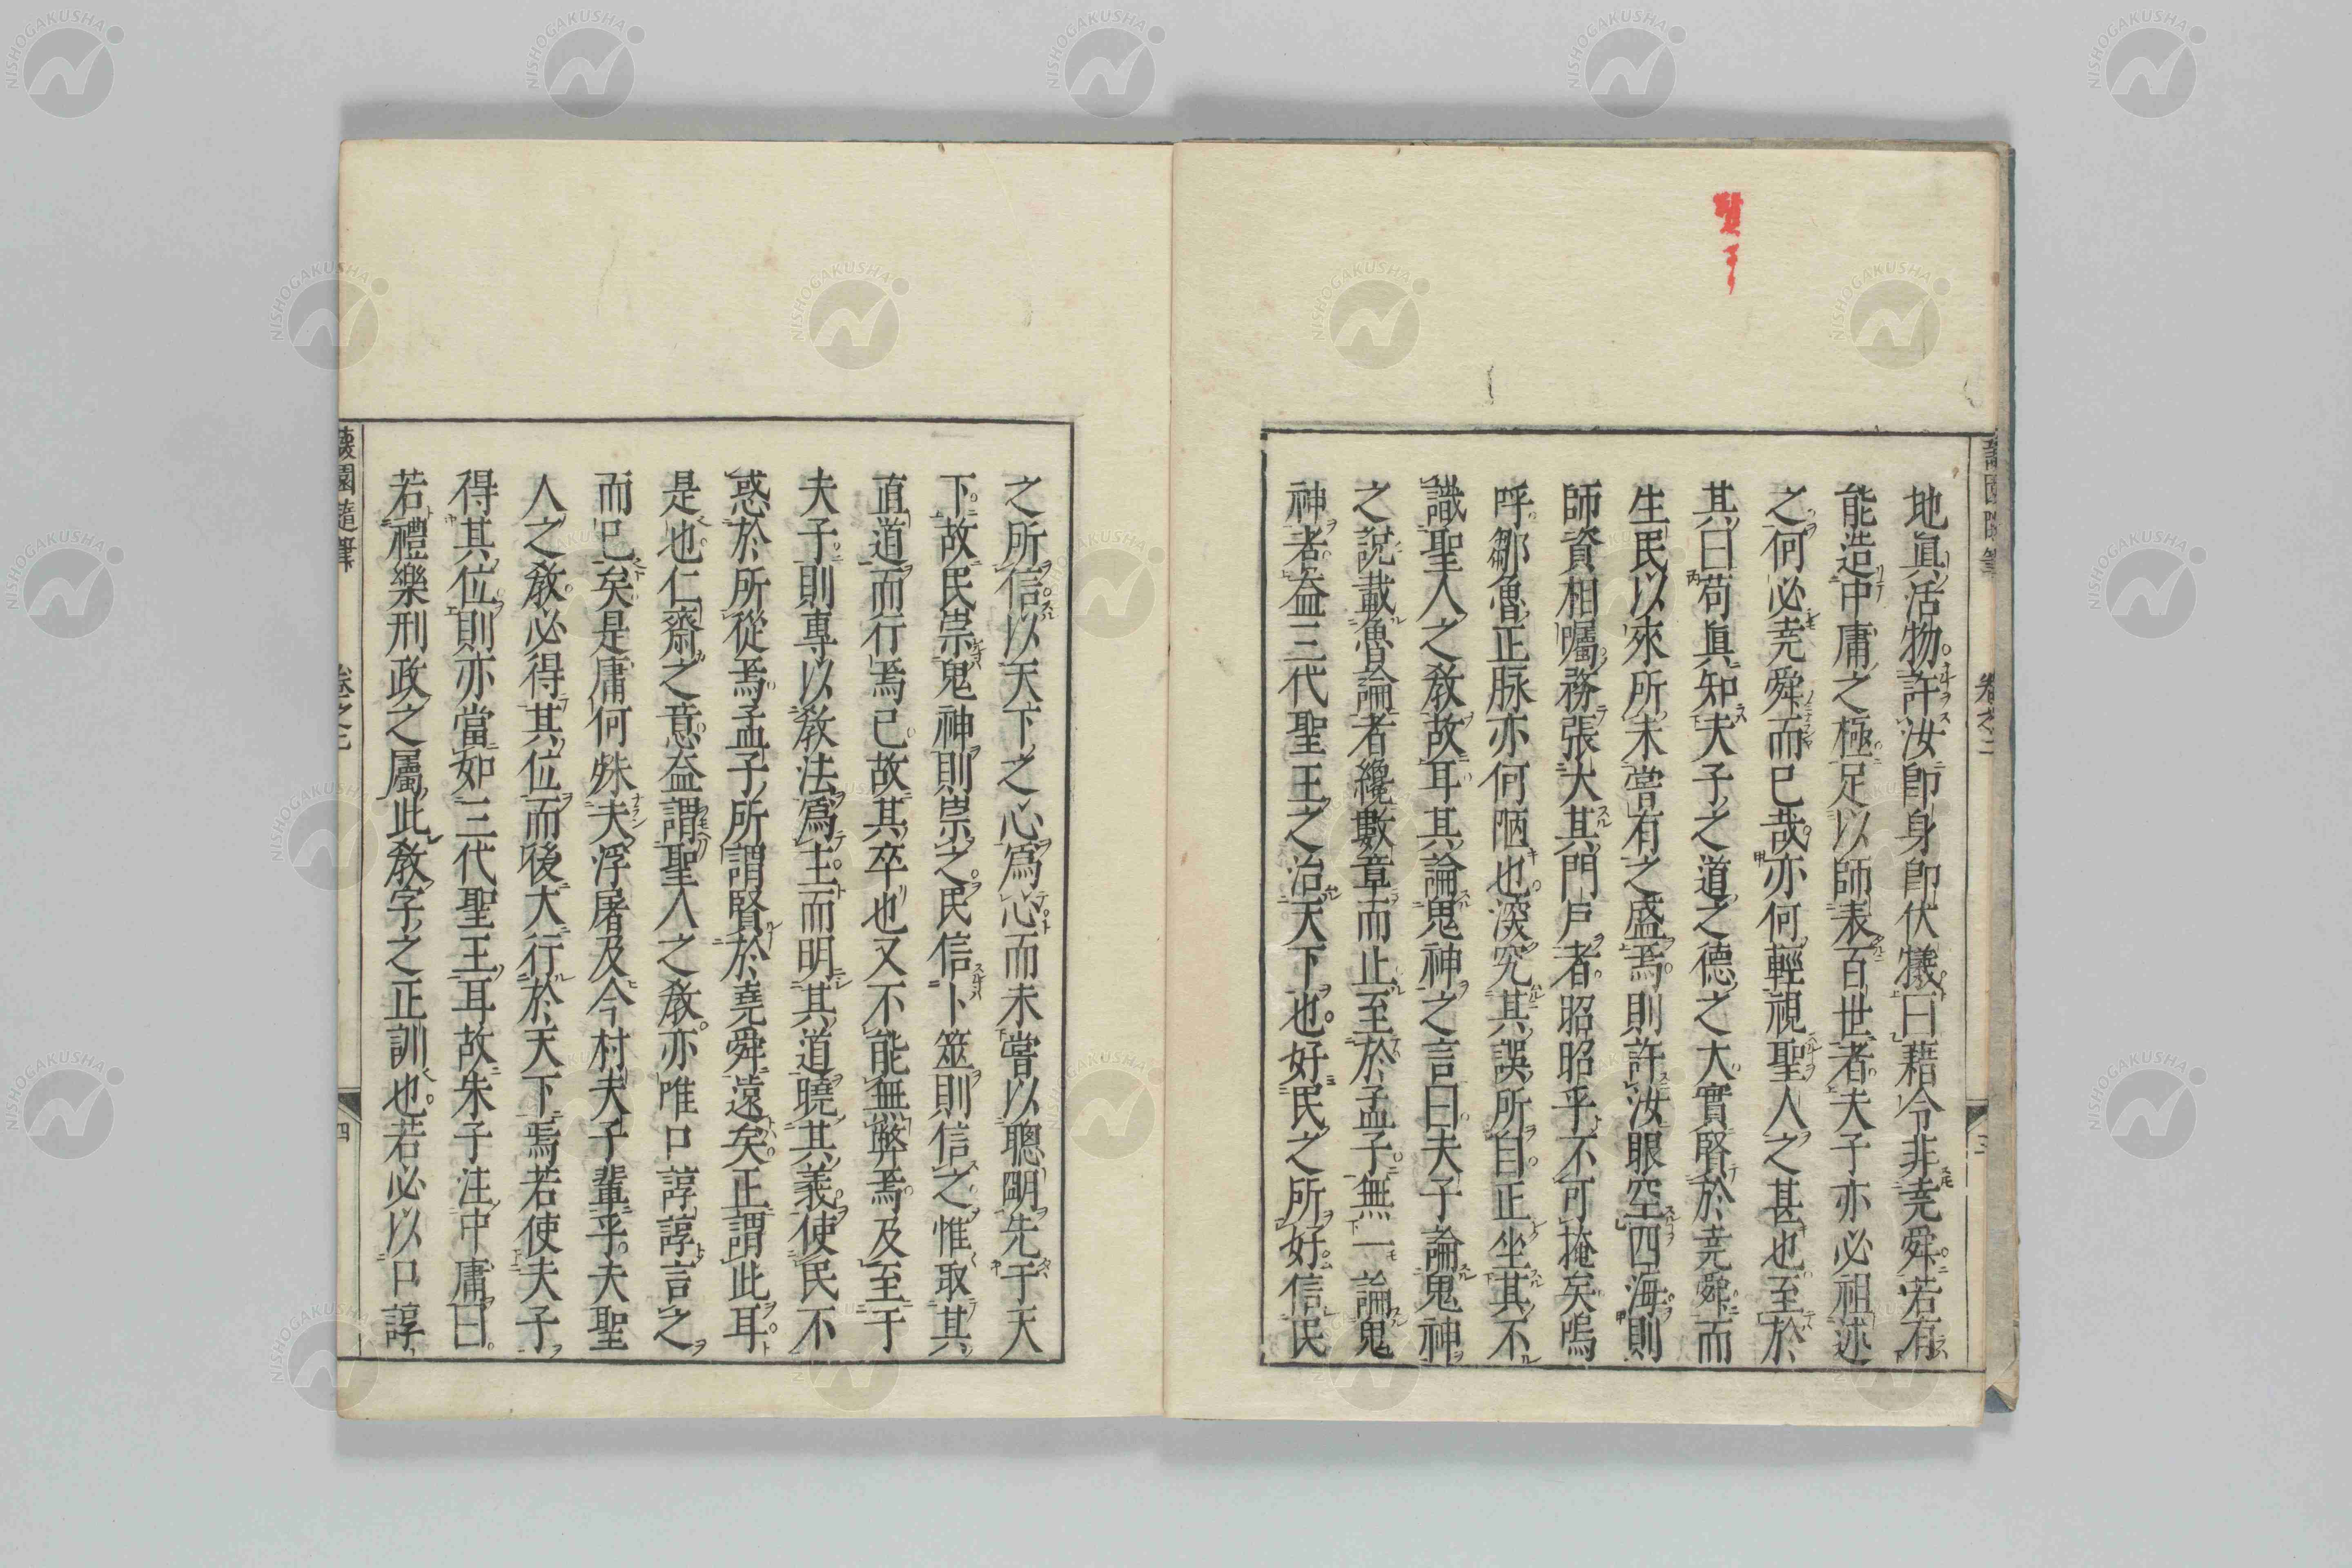 地眞活物許汝卽身卽伏犧曰藉令非堯舜若有
能造中庸之極足以師表百世者夫子亦必祖述
之何必堯舜而已哉亦何輕視聖人之甚也至於
其曰苟眞知夫子之道之德之大實賢於堯舜而
生民以來所未嘗有之盛焉則許汝眼空四海則
師資相囑務張大其門戶者昭昭乎不可掩矣嗚
呼鄒魯正脉亦何陋也深究其誤所自正坐其不
識聖人之敎故耳其論鬼神之言曰夫子論鬼神
之說載魯論者纔數章而止至於孟子無一論鬼
神者益三代聖王之治天下也好民之所好信民
之所信以天下之心爲心而未嘗以聰明先于天
下故民崇鬼神則崇之民信卜筮則信之惟取其
直道而行焉已故其卒也又不能無弊焉及至于
夫子則專以敎法爲主而明其道曉其義使民不
惑於所從焉孟子所謂賢於堯舜遠矣正謂此耳
是也仁齋之意益謂聖人之敎亦唯口諄諄言之
而已矣是庸何殊夫浮屠及今村夫子輩乎夫聖
人之敎必得其位而後大行於天下焉若使夫子
得其位則亦當如三代聖王耳故朱子注中庸曰
若禮樂刑政之屬此敎字之正訓也若必以口諄
卷之二
三
蘐園隨筆
卷之二
四
NISHOGAKUSHA